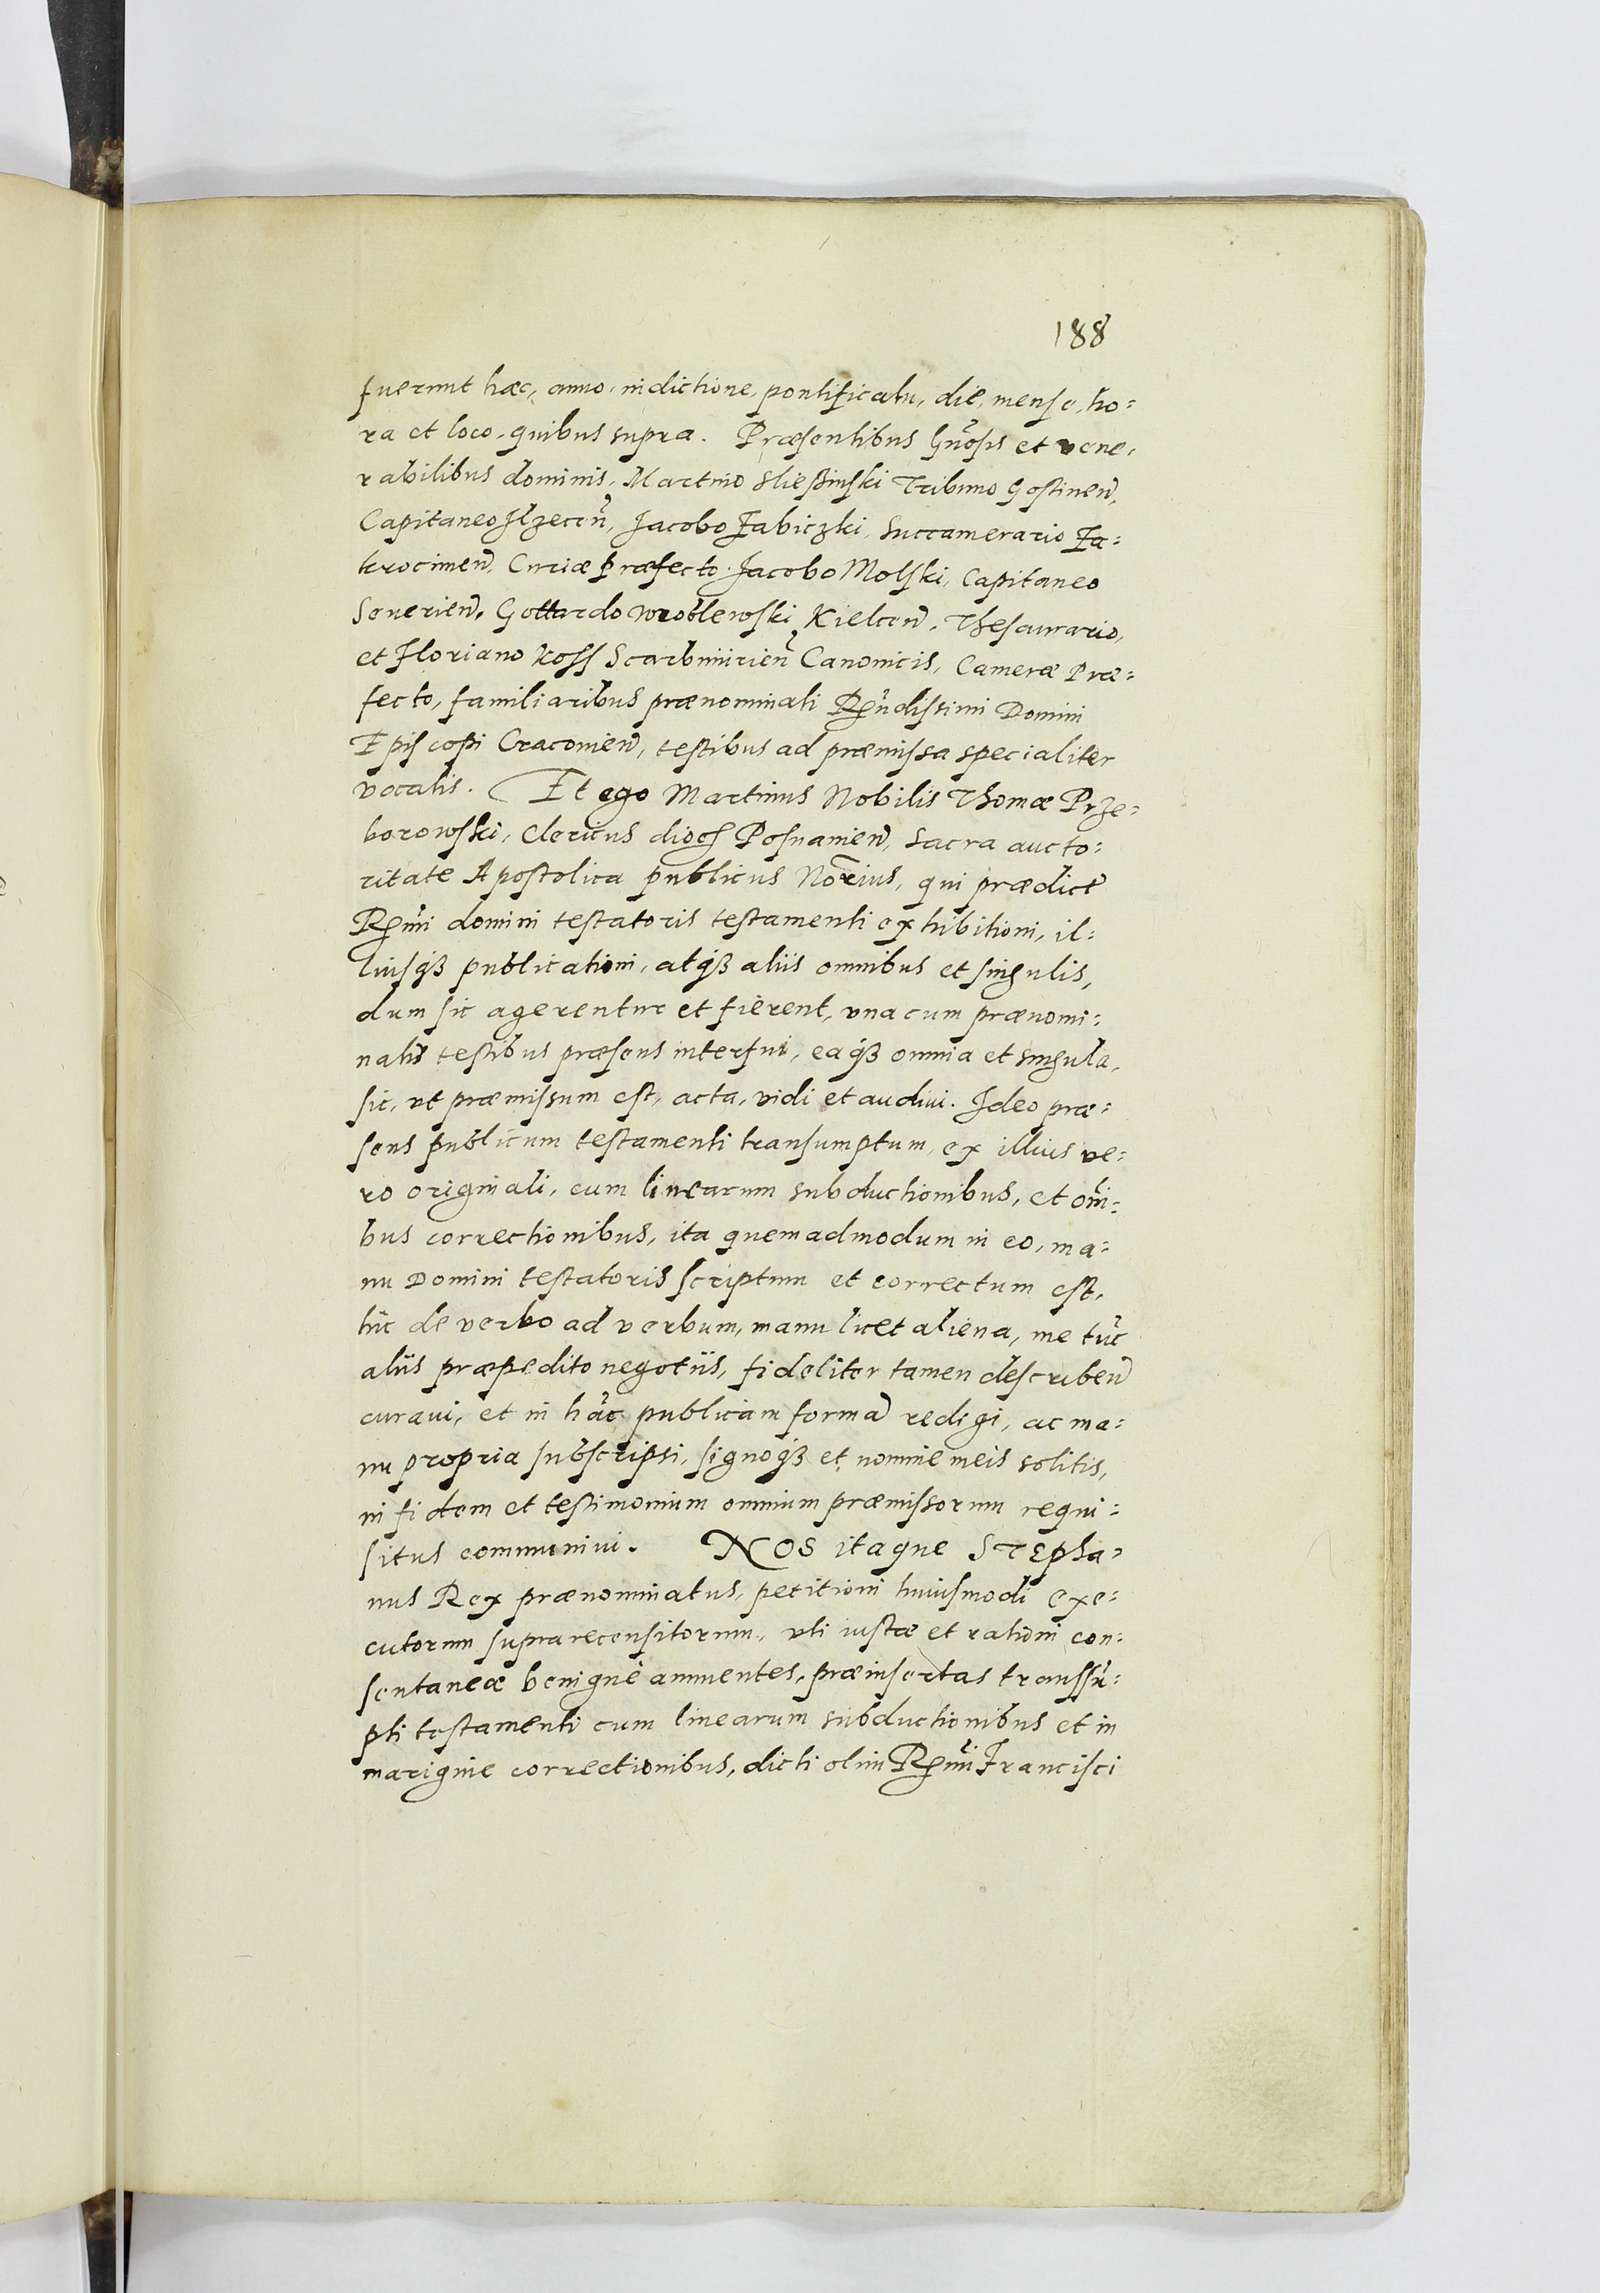 188
fuerunt hæc, anno, indictione, pontificatu, die, mense, ho=
ra et loco, quibus supra. Præsentibus Gñosis et vene,
rabilibus dominis, Martino Slieβinski Tribuno Gostineñ,
Capitaneo Ilzeceñ, Jacobo Fabiczki, Succamerario Za=
krocimeñ, Curiæ Præfecto. Jacobo Molski, Capitaneo
Seuerieñ, Gottardo Wroblewski Kielceñ, Thesaurario,
et Floriano Koss Scarbimirieñ Canonicis, Cameræ Præ=
fecto, familiaribus prænominati Rñdissimi Domini
Episcopi Cracouieñ, testibus ad præmissa specialiter
vocatis. Et ego Martinus Nobilis Thomæ Prze=
borowski, Clericus dioces Posnanieñ, sacra aucto=
ritate Apostolica publicus Norius, qui prædict
Rmi domini testatoris testamenti exhibitioni, il=
liusqꝫ publicationi, atqꝫ aliis omnibus et singulis,
dum sic agerentur et fierent, vna cum prænomi=
natis testibus præsens interfui, eaqꝫ omnia et singula,
sic, vt præmissum est, acta, vidi et audiui. Ideo præ=
sens publicum testamenti transumptum, ex illius ve=
ro originali, cum linearum subductionibus, et oñi=
bus correctionibus, ita quemadmodum in eo, ma=
nu Domini testatoris scriptum et correctum est,
hic de verbo ad verbum, manu licet aliena, me tuc̄
aliis præpedito negotiis, fideliter tamen describeñ
curaui, et in hāc publicam formā redigi, ac ma=
nu propria subscripsi, signoqꝫ et nomine meis solitis,
in fidem et testimonium omnium præmissorum requi=
situs communiui. NOS itaque STEPha=
nus Rex prænominatus, petitioni huiusmodi exe=
cutorum suprarecensitorum, vti iustæ et rationi con=
sentaneæ benignè annuentes, præinsertas transsū=
pti testamenti cum linearum subductionibus et in
marigine correctionibus, dicti olim Rmi Francisci